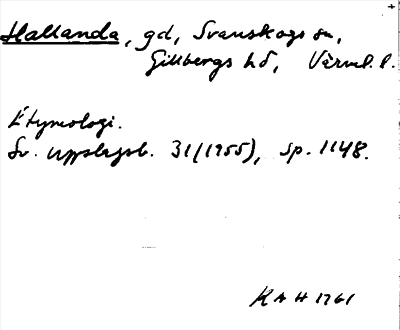 Hallanda, gd, Svanskogs sn,
Gillbergs hd, Värml. l.
Etymologi.
Sv. uppslagsb. 31 (1955), sp. 1148.
KAH 1961